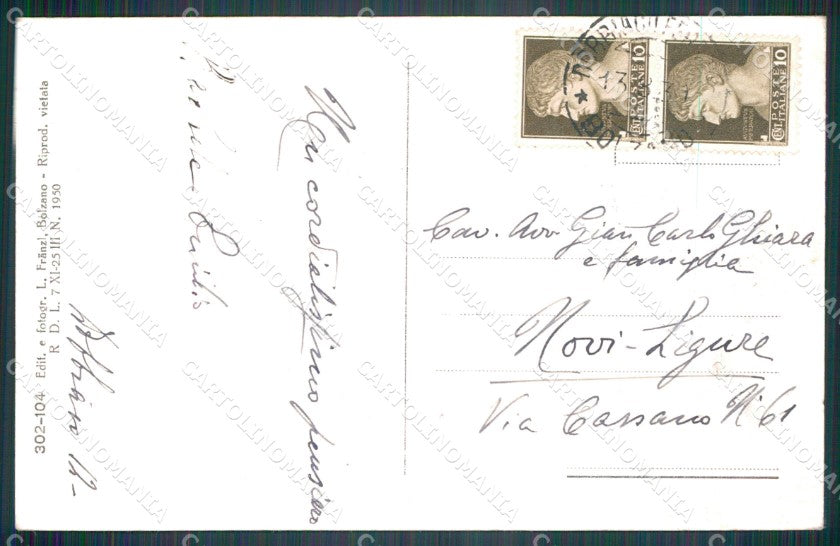 302-104 Edit. e fotogr. L. Fränzl, Bolzano - Riprod. vietata
R. D. L. 7 XI-25 III N. 1950
Un cordialissimo pensiero
10
POSTE
ITALIANE
10
POSTE
ITALIANE
13
Cav. Avv Gian Carlo Ghiara
e famiglia
Novi-Ligure
Via Cassano N. 61
CARTOLINOMANIA